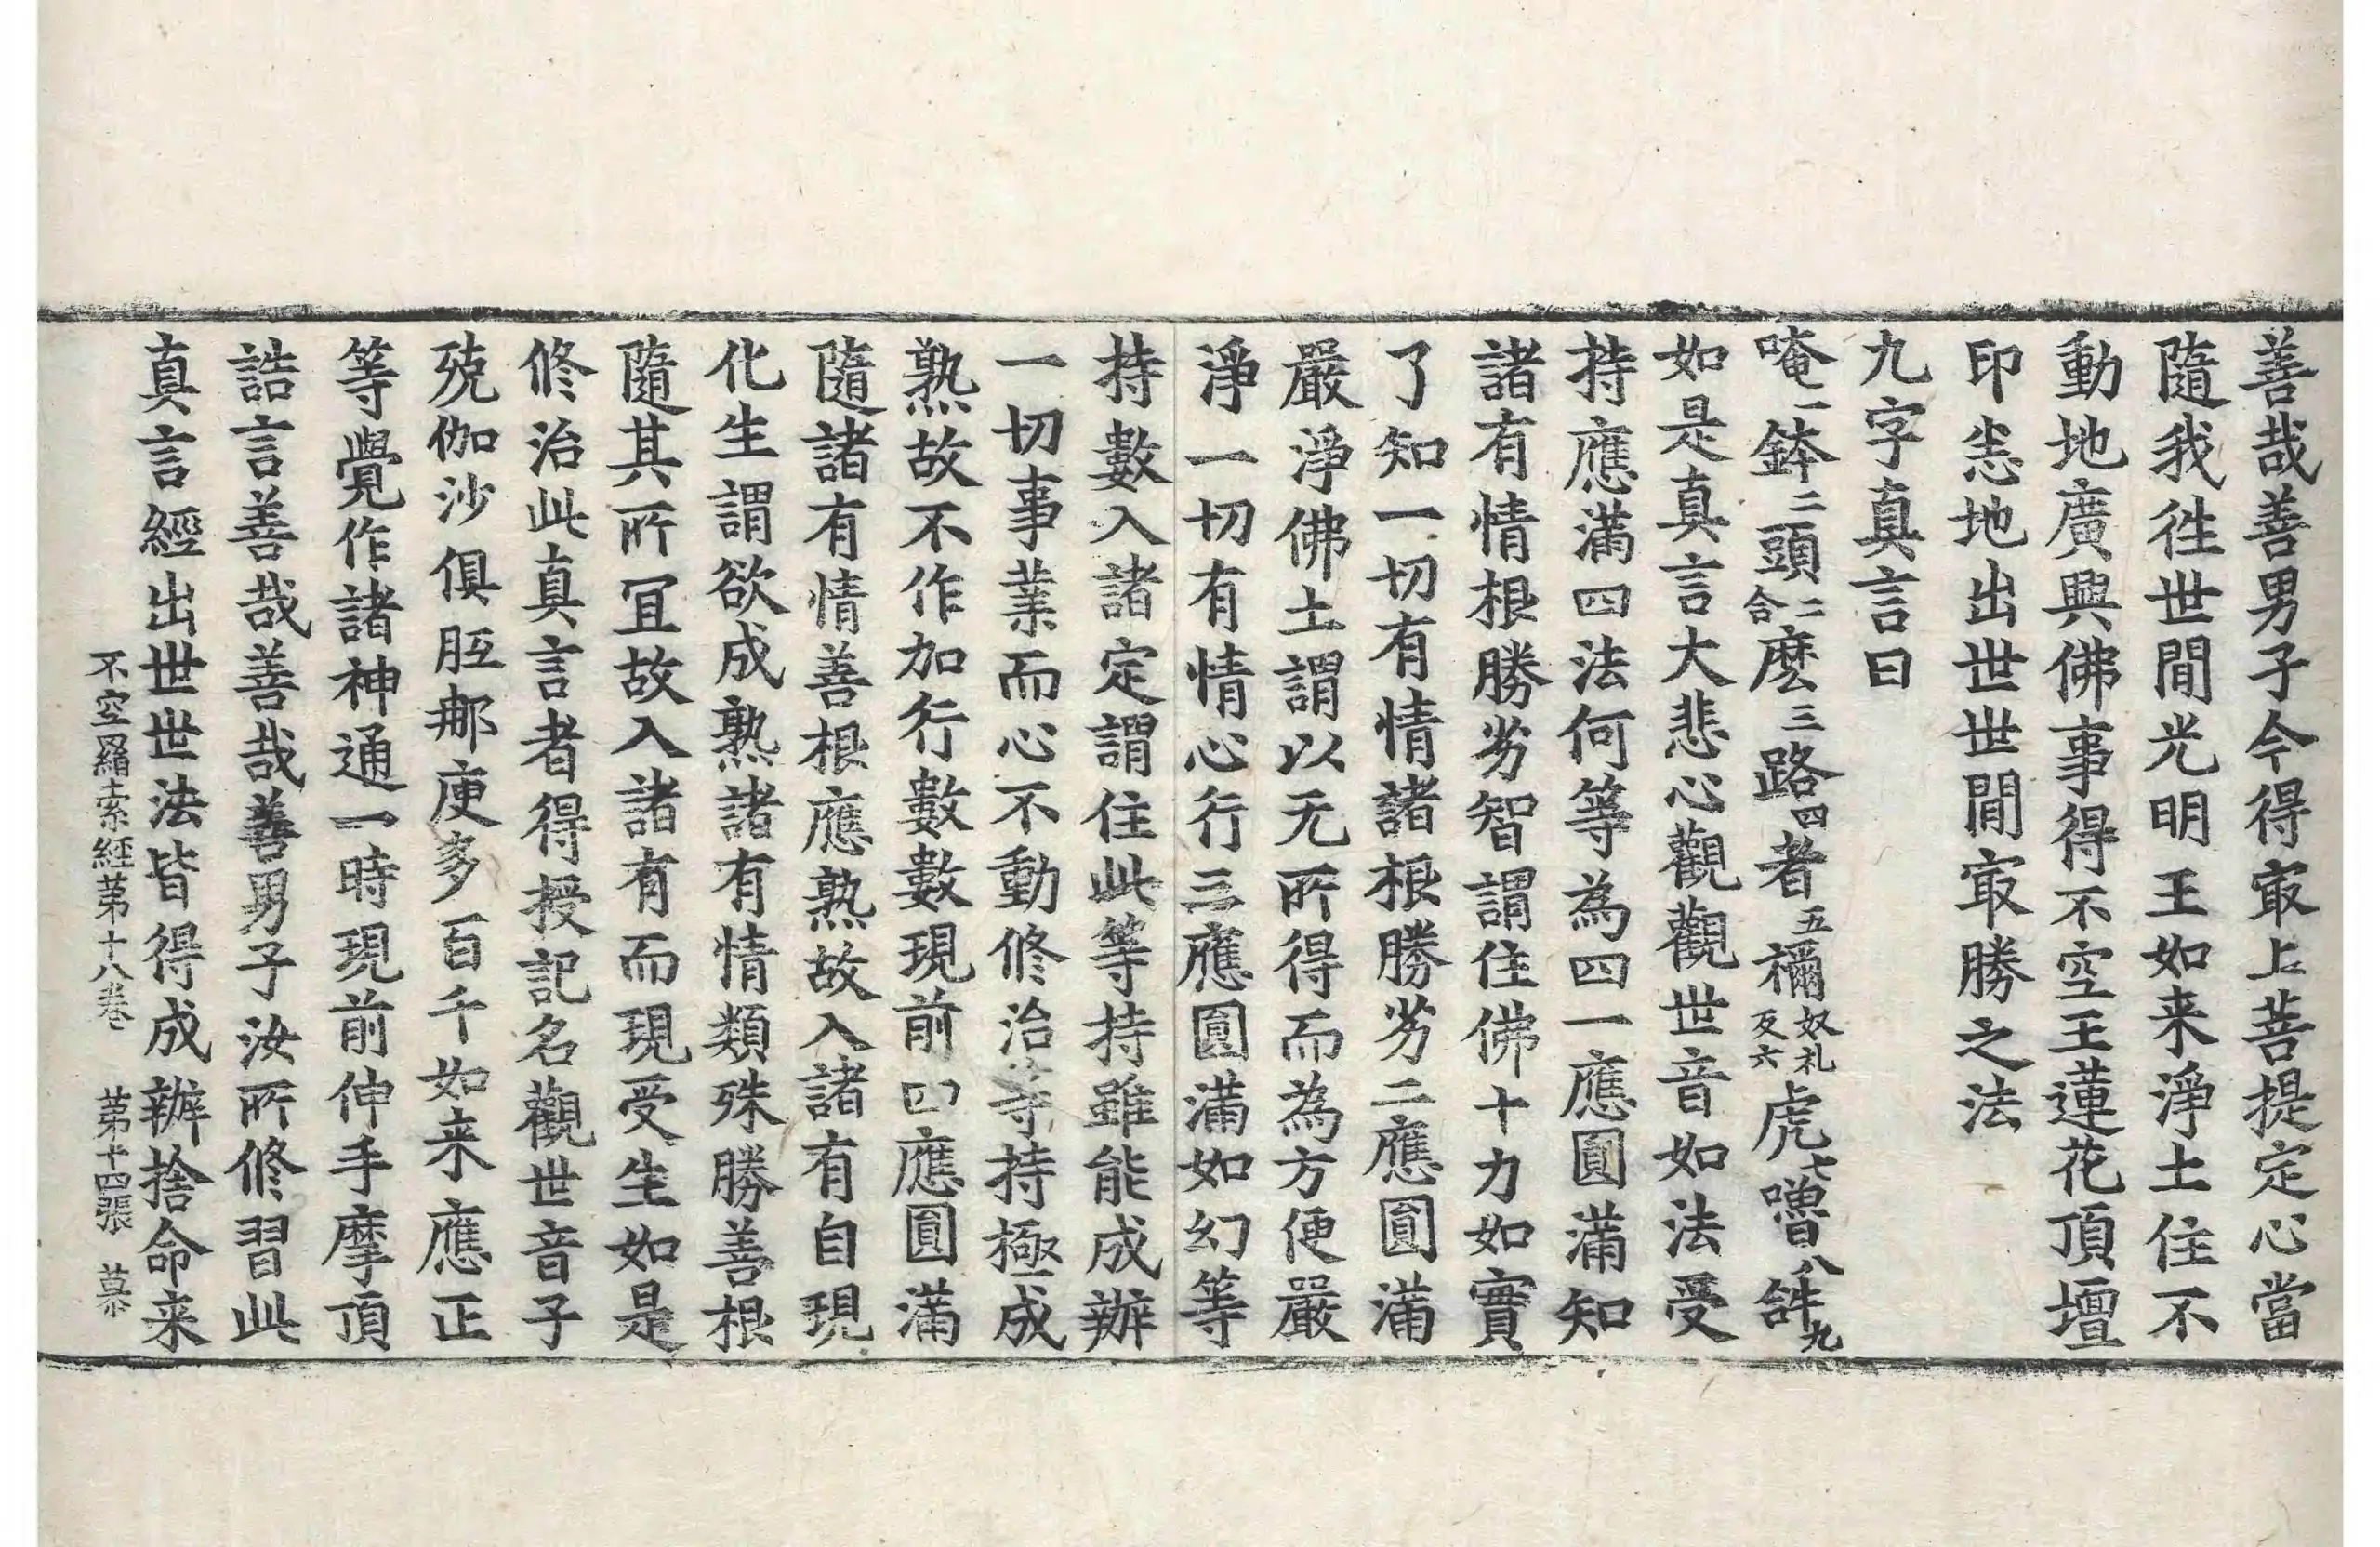 善哉善男子今得㝡上菩提定心當
隨我徃世間光明王如来淨土住不
動地廣興佛事得不空王蓮花頂壇
印悉地出世世間㝡勝之法
九字真言曰
唵一鉢二頭二合麽三路四者五禰奴礼反六虎七嚕八𤙖九
如是真言大悲心觀觀世音如法受
持應滿四法何等為四一應圓滿知
諸有情根勝劣智謂住佛十力如實
了知一切有情諸根勝劣二應圓滿
嚴淨佛土謂以无所得而為方便嚴
淨一切有情心行三應圓滿如幻等
持數入諸定謂住此等持雖能成辦
一切事業而心不動修治等持極成
熟故不作加行數數現前四應圓滿
隨諸有情善根應熟故入諸有自現
化生謂欲成熟諸有情類殊勝善根
隨其所冝故入諸有而現受生如是
修治此真言者得授記名觀世音子
殑伽沙俱胝那庾多百千如来應正
等覺作諸神通一時現前伸手摩頂
誥言善哉善哉善男子汝所修習此
真言經出世世法皆得成辦捨命来
不空羂索經苐十八卷 苐十四張 慕